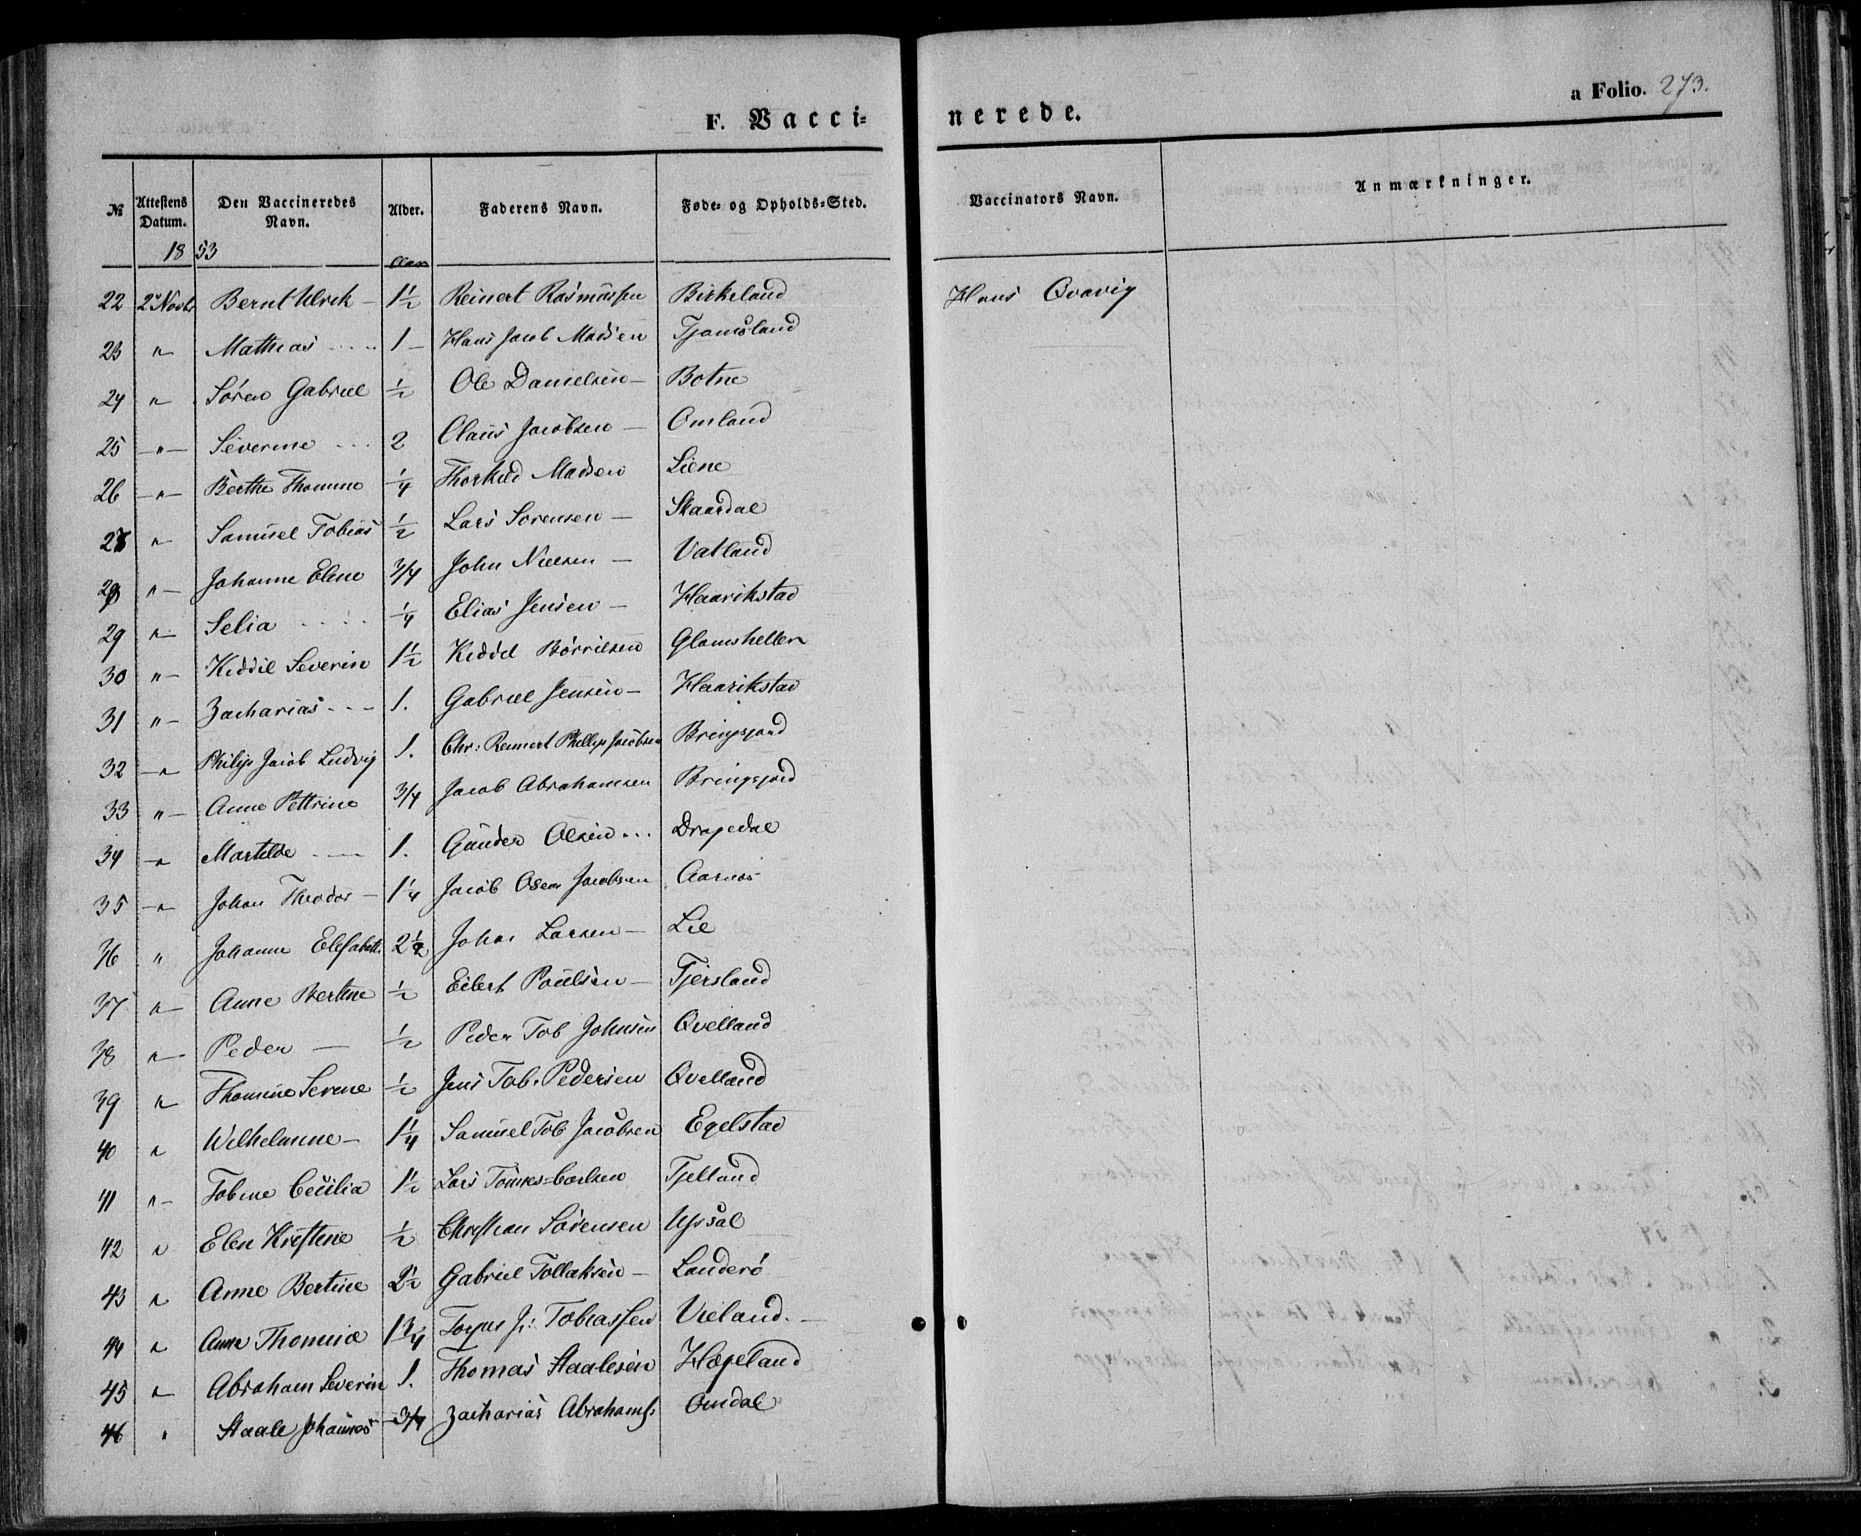 F. Vaccinerede. a Folio. 273.
№ Attestens Datum. Den Vaccineredes Navn. Alder. Faderens Navn. Føde- og Opholds-Sted. Vaccinators Navn. Anmærkninger.
1853 Aar
22 2 Novbr Bernt Ulrik - 1½ Reinert Rasmussen Birkeland Hans Qvavig
23 " Mathias .... 1 - Hans Jacob Madsen Tjomsland
24 " Sören Gabriel ½ Ole Danielsen - Botne
25 -"- Severine ... 2 Claus Jacobsen - Omland
26 -"- Berthe Thomine ¼ Thorkild Madsen Liene
27 " Samuel Tobias ½ Lars Sørensen - Skaardal
28 "- Johanne Elene 3/4 John Nielsen - Vatland
29 "- Selia .... ¼ Elias Jensen - Haarikstad
30 "- Kiddil Severin 1½ Kiddel Börrilsen Glomsheller
31 "- Zacharias ... 1. Gabriel Jensen - Haarikstad
32 -" Philip Jacob Ludvig 1. Chr: Reinert Phillip Jacobsen Bringsjord
33 "- Anne Pettrine 3/4 Jacob Abrahamsen Bringsjord
34 -" Martilde ... 1. Gunder Olsen ... Dragedal
35 -" Johan Theodor - 1¼ Jacob Osen Jacobsen Aarnes
36 " Johanne Elisabeth. 2½ Johan Larsen - Lie
37 "- Anne Bertine ½ Eilert Poulsen - Tjersland
38 "- Peder - ½ Peder Tob Johnsen Qvelland
39 " Thomine Serene ½ Jens Tob. Pedersen Qvelland
40 " Wilhelmine - 1¼ Samuel Tob Jacobsen Egelstad
41 "- Tobine Cecilia 1½ Lars Tönnes Carlsen Tjelland
42 " Elen Kristine ½ Christian Sörensen Upsal
43 " Anne Bertine 2½ Gabriel Tollaksen - Landerö
44 " Anne Thomine 1¾ Torjus J: Tobiassen Vieland. -
45 " Abraham Severin 1. Thomas Staalesen Hægeland
46 " Staale Johannes 3/4 Zacharias Abrahams. Omdal